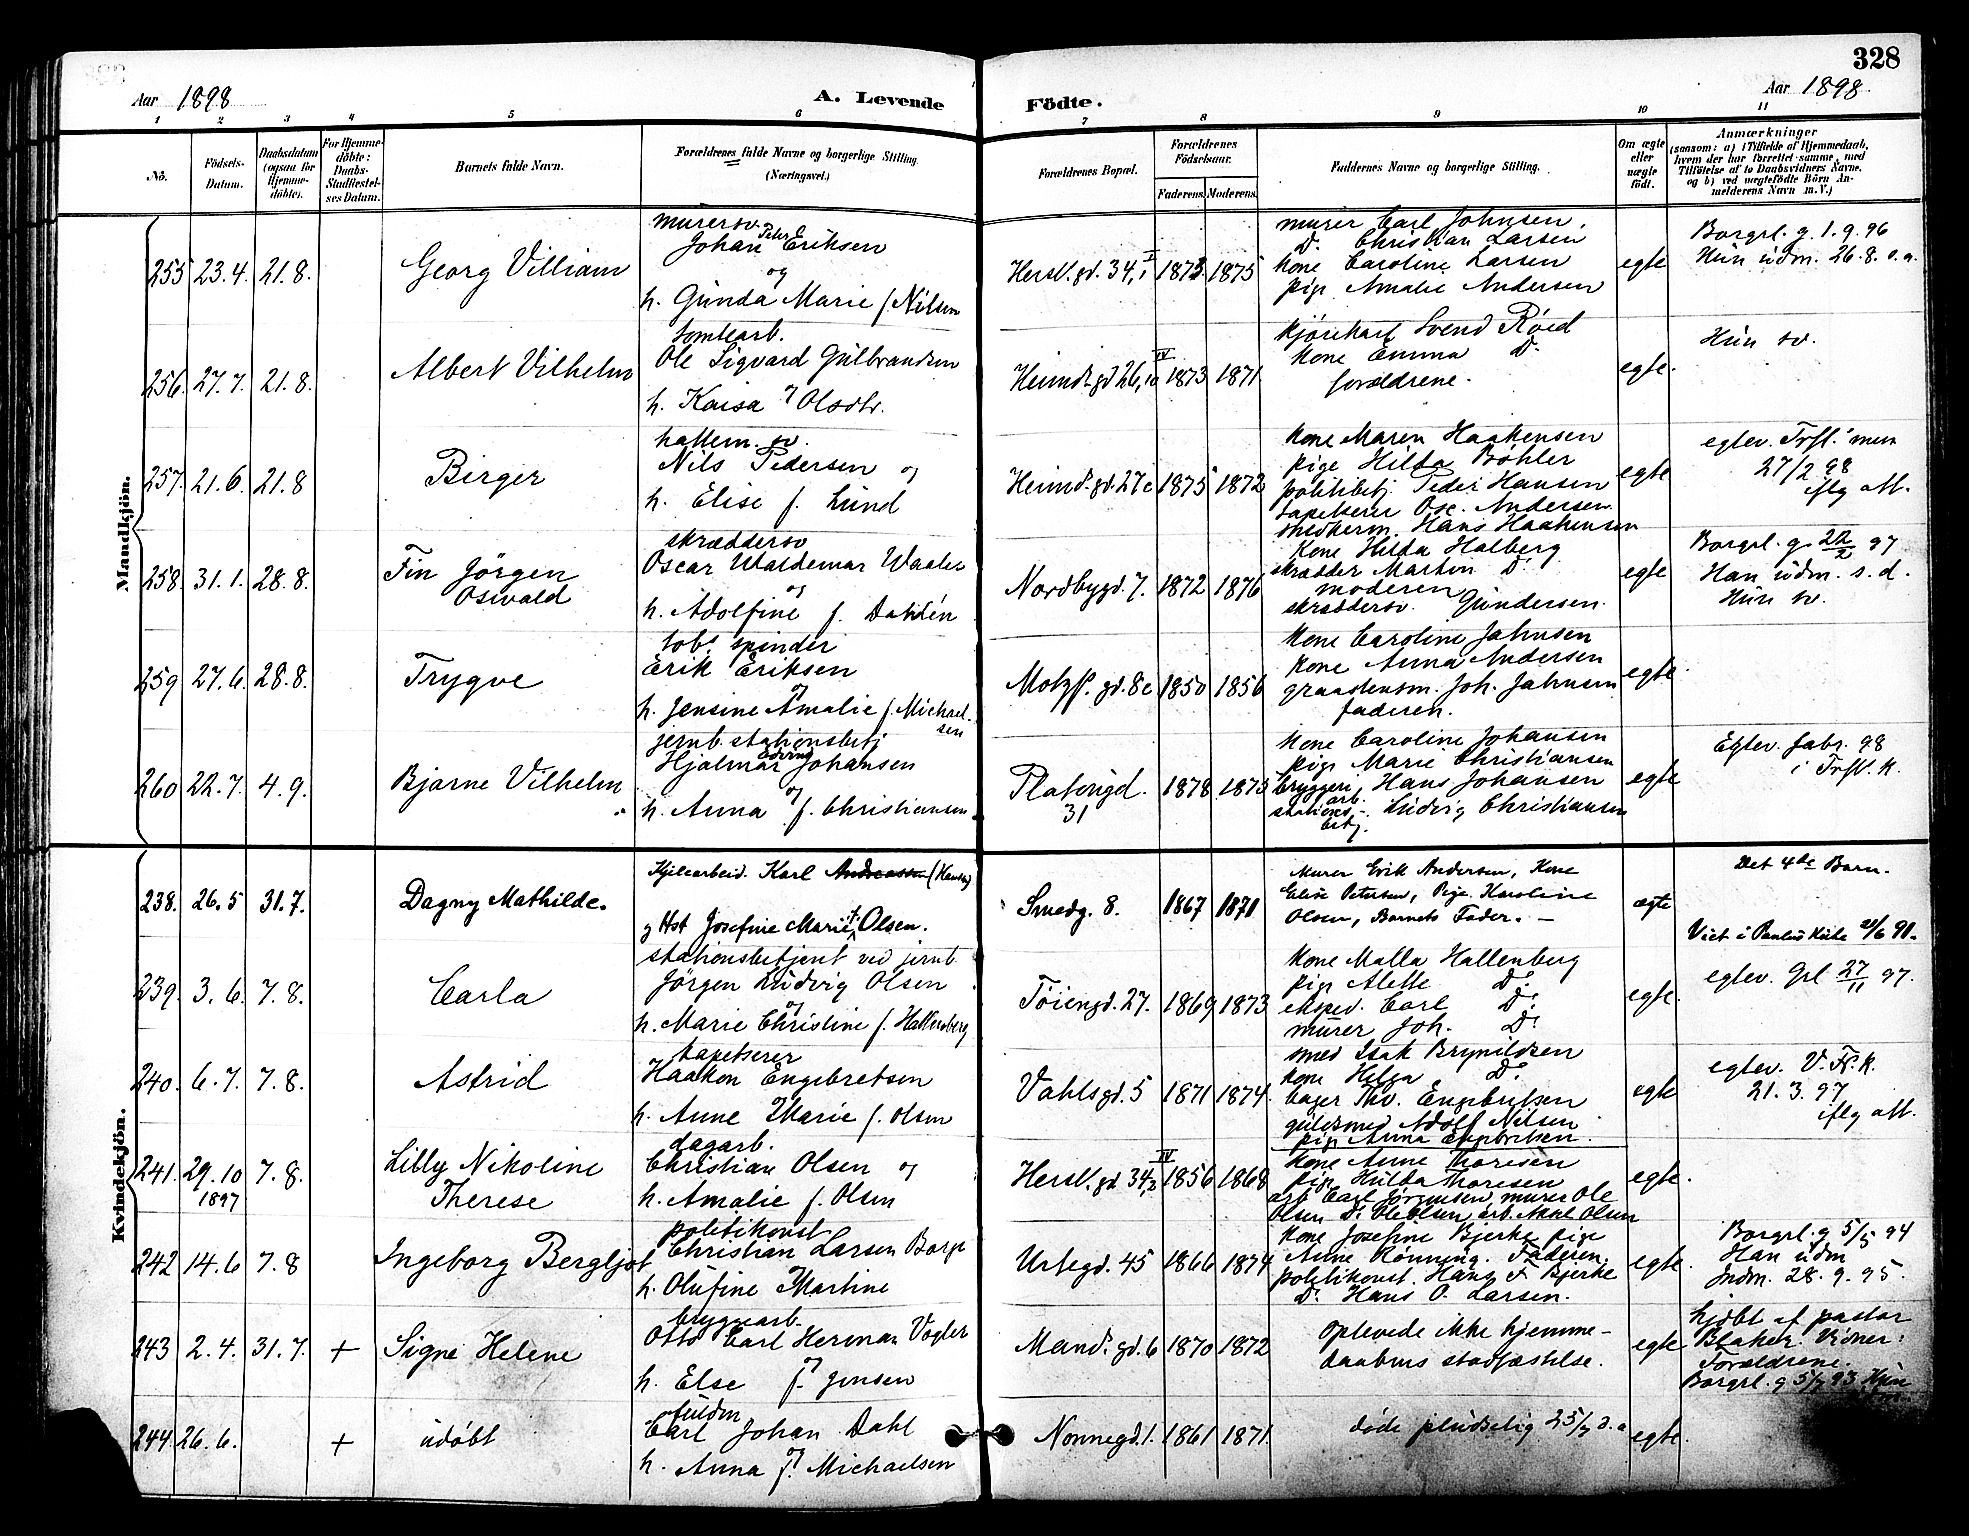 328
Aar 1898
A. Levende
Födte.
Aar 1898.
1 2 3 4 5 6 7 8 9 10 11
No.
Födsels-Datum.
Daabsdatum (ogsaa for Hjemme-döbte).
For Hjemme-döbte: Daabs-Stadfæstel-ses Datum.
Barnets fulde Navn.
Forældrenes fulde Navne og borgerlige Stilling. (Næringsvei.)
Forældrenes Bopæl.
Forældrenes Födselsaar.
Faderens. Moderens.
Faddernes Navne og borgerlige Stilling.
Om ægte eller uægte födt.
Anmærkninger
(saasom: a) i Tilfælde af Hjemmedaab,
hvem der har forrettet samme, med
Tilföielse af to Daabsvidners Navne,
og b) ved uægtefödte Börn An-
melderens Navn m. V.)
Mandkjön.
255 23.4. 21.8.
Georg Villiam
murersv.
Johan Peter Eriksen
og
h. Gunda Marie f. Nilsen
Hersl. gd. 34, I 1
1873 1875
murer Carl Johnsen,
Do Christian Larsen
kone Caroline Larsen
pige Amalie Andersen
egte
Borgrl. g. 1.9.96
Hun udm. 26.8. s.a.
256. 27.7. 21.8.
Albert Vilhelm
tomtearb.
Ole Sigvard Gulbrandsen
og
h. Kaisa Olsdtr.
Heimd. gd 26, IV 10
1873 1871
kjørekarl Svend Röed
kone Emma Do
forældrene.
egte.
Hun sv.
257. 21.6. 21.8
Birger
hattem. sv.
Nils Pedersen og
h. Elise f. Lund
Heimd. gd. 27c
1875 1872
kone Maren Haakensen
pige Hilda Böhler
politibetj. Peder Hansen
tapetserer Osc. Andersen
snedkerm. Hans Haakensen
egte
egtev. Trfl. men
27/2 98
iflg att.
258 31.1. 28.8.
Fin Jörgen
Osvald
skræddersv
Oscar Waldemar Waaler
og
h. Adolfine f. Dahlén
Nordbygd. 7.
1872 1876
kone Hilda Halberg
skrædder Martin Do
moderen
skræddersv. Gundersen.
egte
Borgrl. g 22/2 97
Han udm. s. d.
Hun sv.
259 27.6. 28.8.
Trygve
tobs. spinder
Erik Eriksen
og
h. Jensine Amalie f. Michael-
sen
Motzf. gd. 8c
1850 1856
kone Caroline Jahnsen
kone Anna Andersen
graastensm. Joh. Jahnsen
faderen.
egte
260 22.7. 4.9.
Bjarne Vilhelm
jernb. stationsbetj
Hjalmar Edvind Johansen
og
h. Anna f. Christiansen
Platougd.
31
1878 1875
kone Caroline Johansen
pige Marie Christiansen
bryggeriarb. Hans Johansen
stations-betj. Ludvig Christiansen
egte
Egtev. febr. 98
i Trfl. k.
Kvindekjön.
238. 26.5 31.7.
Dagny Mathilde.
Kjelearbeid. Karl Andreassen (Hansen)
og Hst Josefine Marie f. Olsen.
Smedg. 8.
1867 1871
Murer Erik Andersen, Kone
Elise Petersen, Pige Karoline
Olsen, Barnets Fader. —
ægte
Det 4de Barn.
Viet i Paulus Kirke 21/6 91.
239. 3.6. 7.8.
Carla
stationsbetjent ved jernb.
Jörgen Ludvig Olsen
og
h. Marie Christine f. Hallenberg
Töiengd. 27.
1869 1873
kone Malla Hallenberg
pige Alette Do
exped. Carl Do
murer Joh. Do
egte.
egtev. Grl 27/11 97.
240. 6.7. 7.8.
Astrid
tapetserer
Haakon Engebretsen
h. Anne Marie f. Olsen
Vahlsgd. 5
1871 1874.
smed Isak Brynildsen
kone Helga Do
bager Thv. Engebretsen
guldsmed Adolf Nilsen
pige Anna Engebretsen.
egte
egtev. V. Fr. k.
21.3.97
iflg att.
241. 29.10 7.8.
1897
Lilly Nikoline
Therese
dagarb.
Christian Olsen og
h. Amalie f. Olsen
Hersl. gd 34, IV 2
1856 1868
kone Anne Thoresen
pige Hulda Thoresen
arb. Carl Jörgensen, murer Ole
Olsen Do Ole Olsen, arb. Axel Olsen
egte.
242 14.6 7.8
Ingeborg Bergljot
politikonst
Christian Larsen Borge
h. Olufine Martine
Urtegd. 45
1866 1874
kone Josefine Bjerke pige
Anne Rönning. Faderen.
politikonst. Hans F Bjerke
Do Hans O. Larsen.
egte.
Borgrl. g 5/5 94
Han udm
Indm. 28.9.95.
243 2.4. 31.7. +
Signe Helene
bryggearb.
Otto Carl Herman Vogler
og
h. Else f. Jensen
Mand. gd. 6
1870 1872
Oplevede ikke hjemme-
daabens stadfæstelse.
egte
hjdbt af pastor
Blaker. Vidner:
Forældrene.
Borgrl. g 5/7 93 Hun
244 26.6. +
udöbt
fuldm
Carl Johan Dahl
og
h. Anna f. Michaelsen
Nonnegd. 1.
1861 1871.
döde pludselig 25/7 d.a
egte.